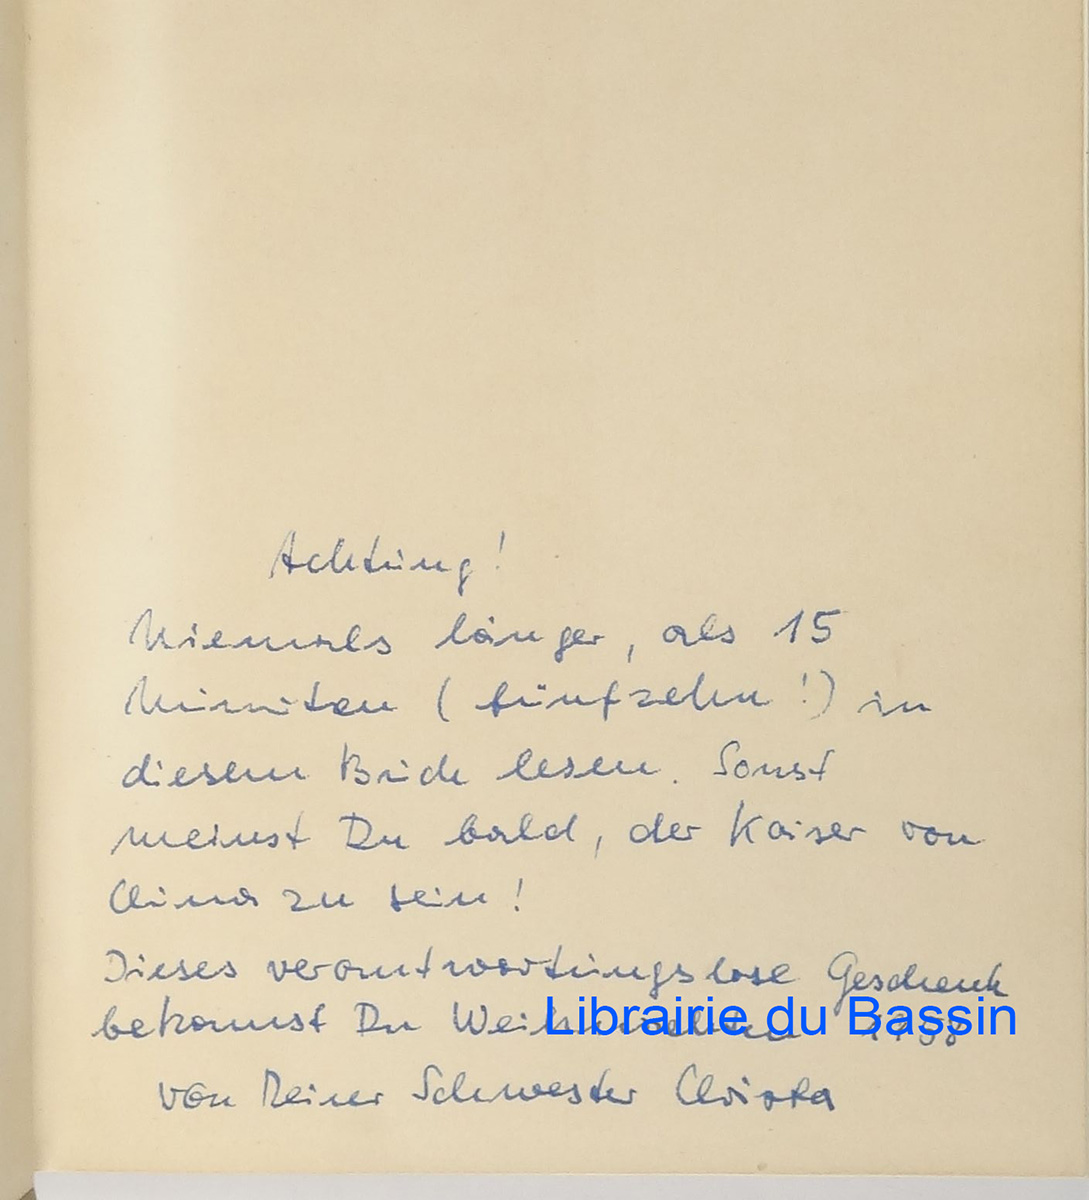 Achtung!
Niemals länger, als 15
Minuten (fünfzehn!) in
diesem Buch lesen. Sonst
meinst Du bald, der Kaiser von
China zu sein!
Dieses verantwortungslose Geschenk
bekomst Du Weihnachten
Librairie du Bassin
von Deiner Schwester Christa